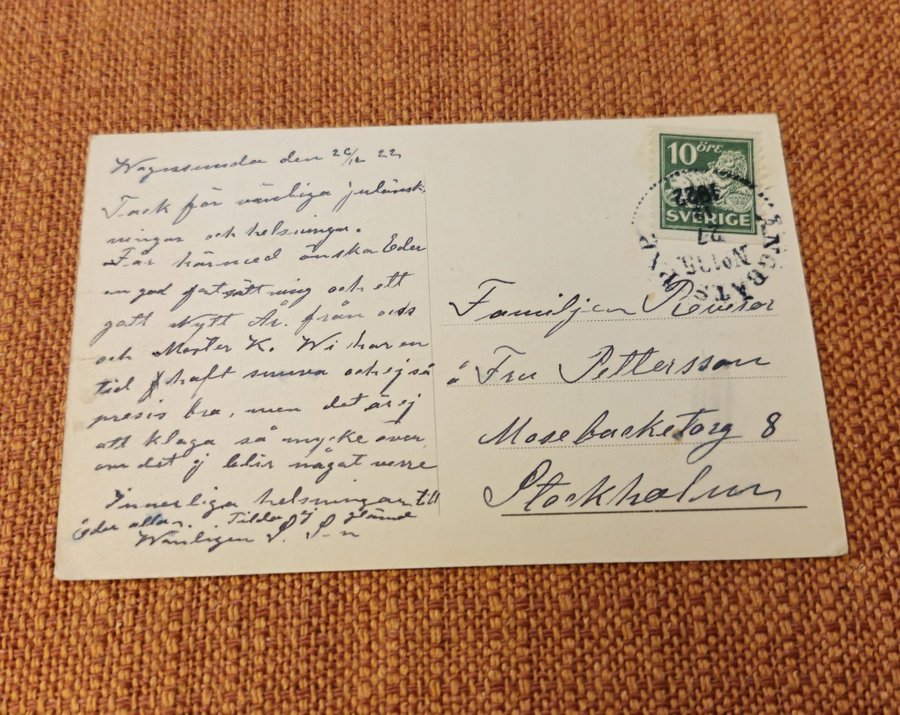 Wagnsunda den 26/12 22
Tack för vänliga julönsk
ningar och helsningar.
Får härmed önska Eder
en god fortsättning och ett
gott Nytt År. från oss
och Moster K. Wi har en
tid haft snuva och ej så
presis bra, men det är ej
att klaga så mycke över,
om det ej blir något verre
Innerliga helsningar till
Eder alla. Tilda
Wänligen S. S-n
10 ÖRE
SVERIGE
1922
27
No 135
ÅNGBÅTS P.XP.
Familjen
å Fru Pettersson
Mosebacketorg 8
Stockholm